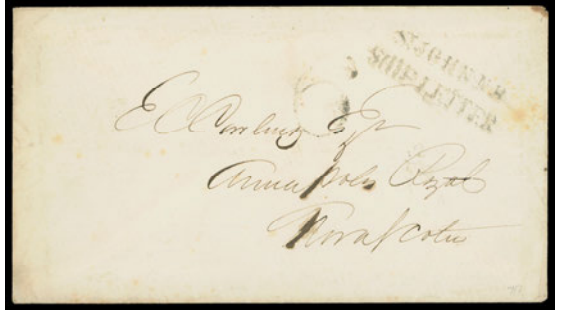 ST JOHN N B
SHIP LETTER
E C Cowling Esqr
Annapolis Royal
Nova Scotia